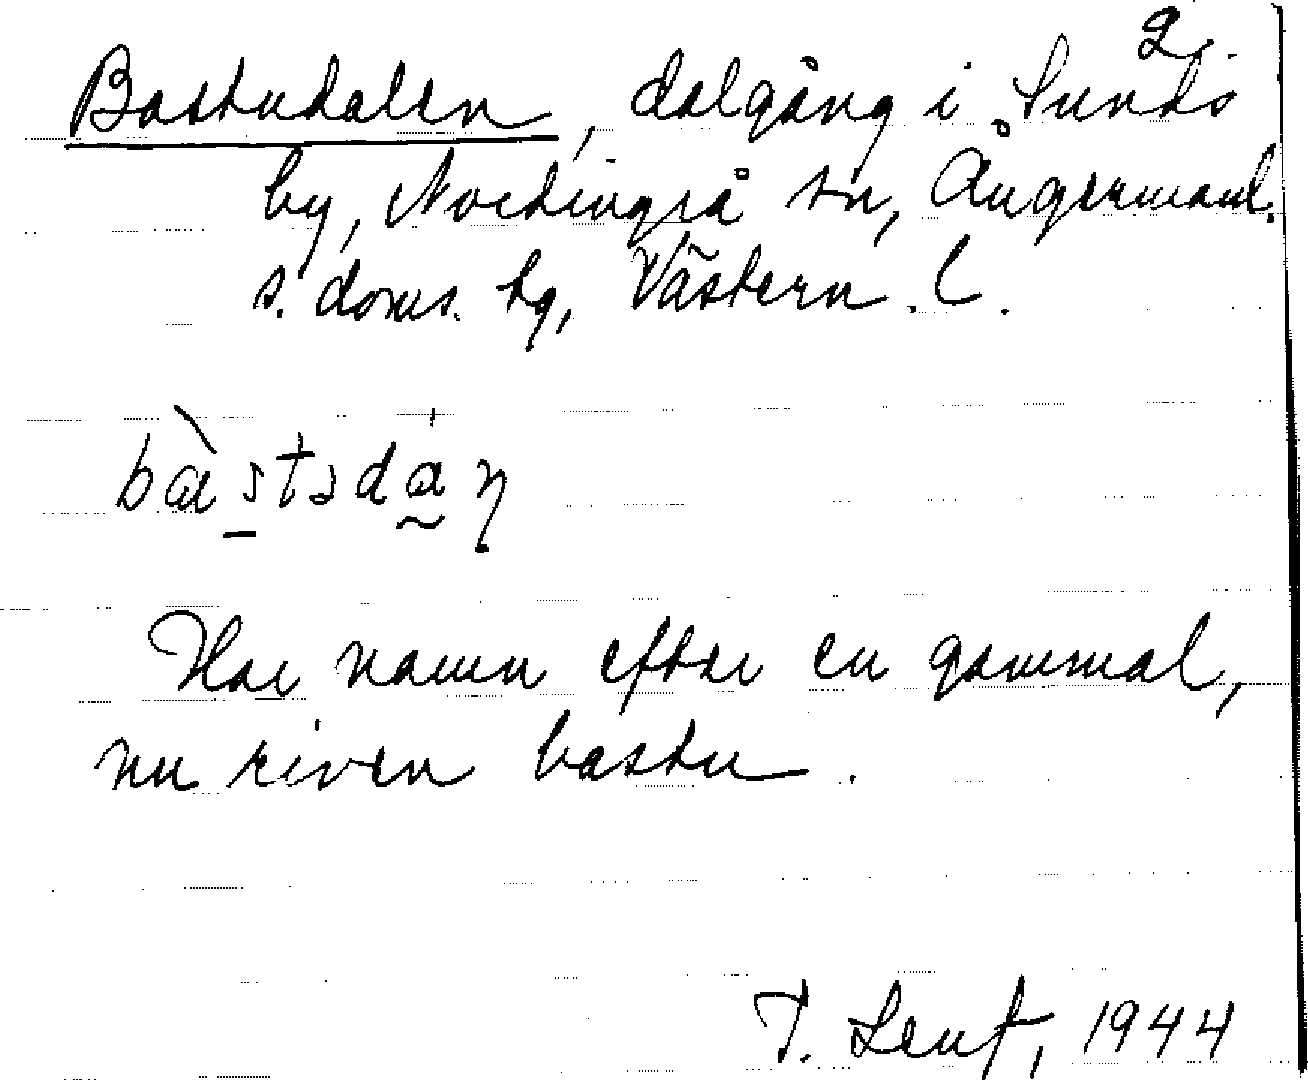 2.
Bastudalen, dalgång i Sunds
by, Nordingrå sn, Ångermanl.
s. doms. tg, Västern. l.
bàstədaη
Har namn efter en gammal,
nu riven bastu.
T. Leuf, 1944